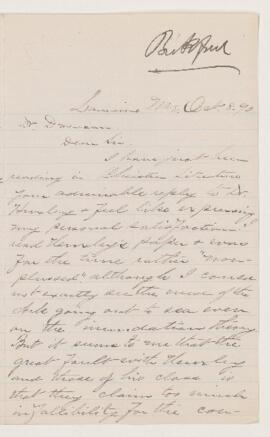 Oct 8, 90
Dear Sir
I have just been
reading in Christian Literature
your admirable reply to Dr.
& feel like expressing
my personal satisfaction. I
read Huxley's paper & was
for the time rather "non-
plussed" although I could
not exactly see the view of the
Ark going out to sea even
on the inundation theory.
But it seems to me that the
great fault with Huxley
and those of his class is
that they claim too much
infallibility for the con-